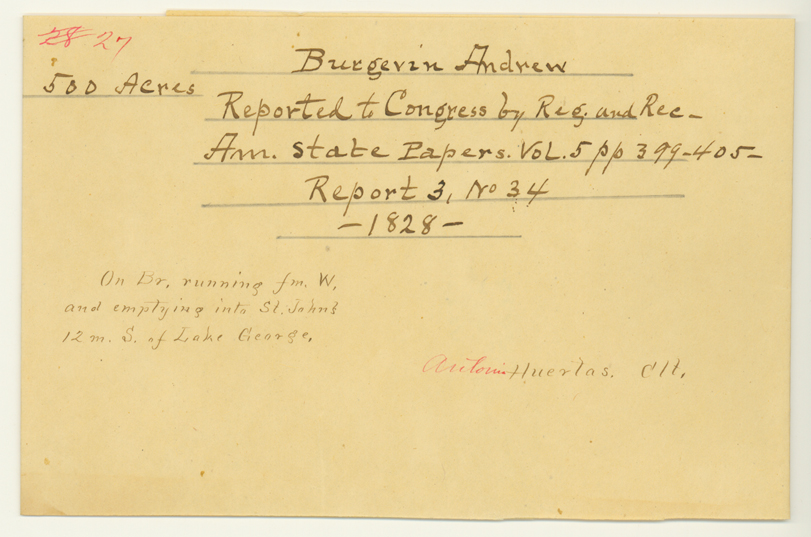 28 27
Burgevin Andrew
500 Acres
Reported to Congress by Reg. and Rec-
Am. State Papers. Vol. 5 pp 399-405-
Report 3, No 34
-1828-
On Br. running fm. W.
and emptying into St. Johns
12 m. S. of Lake George.
Antonio Huertas. Clt.